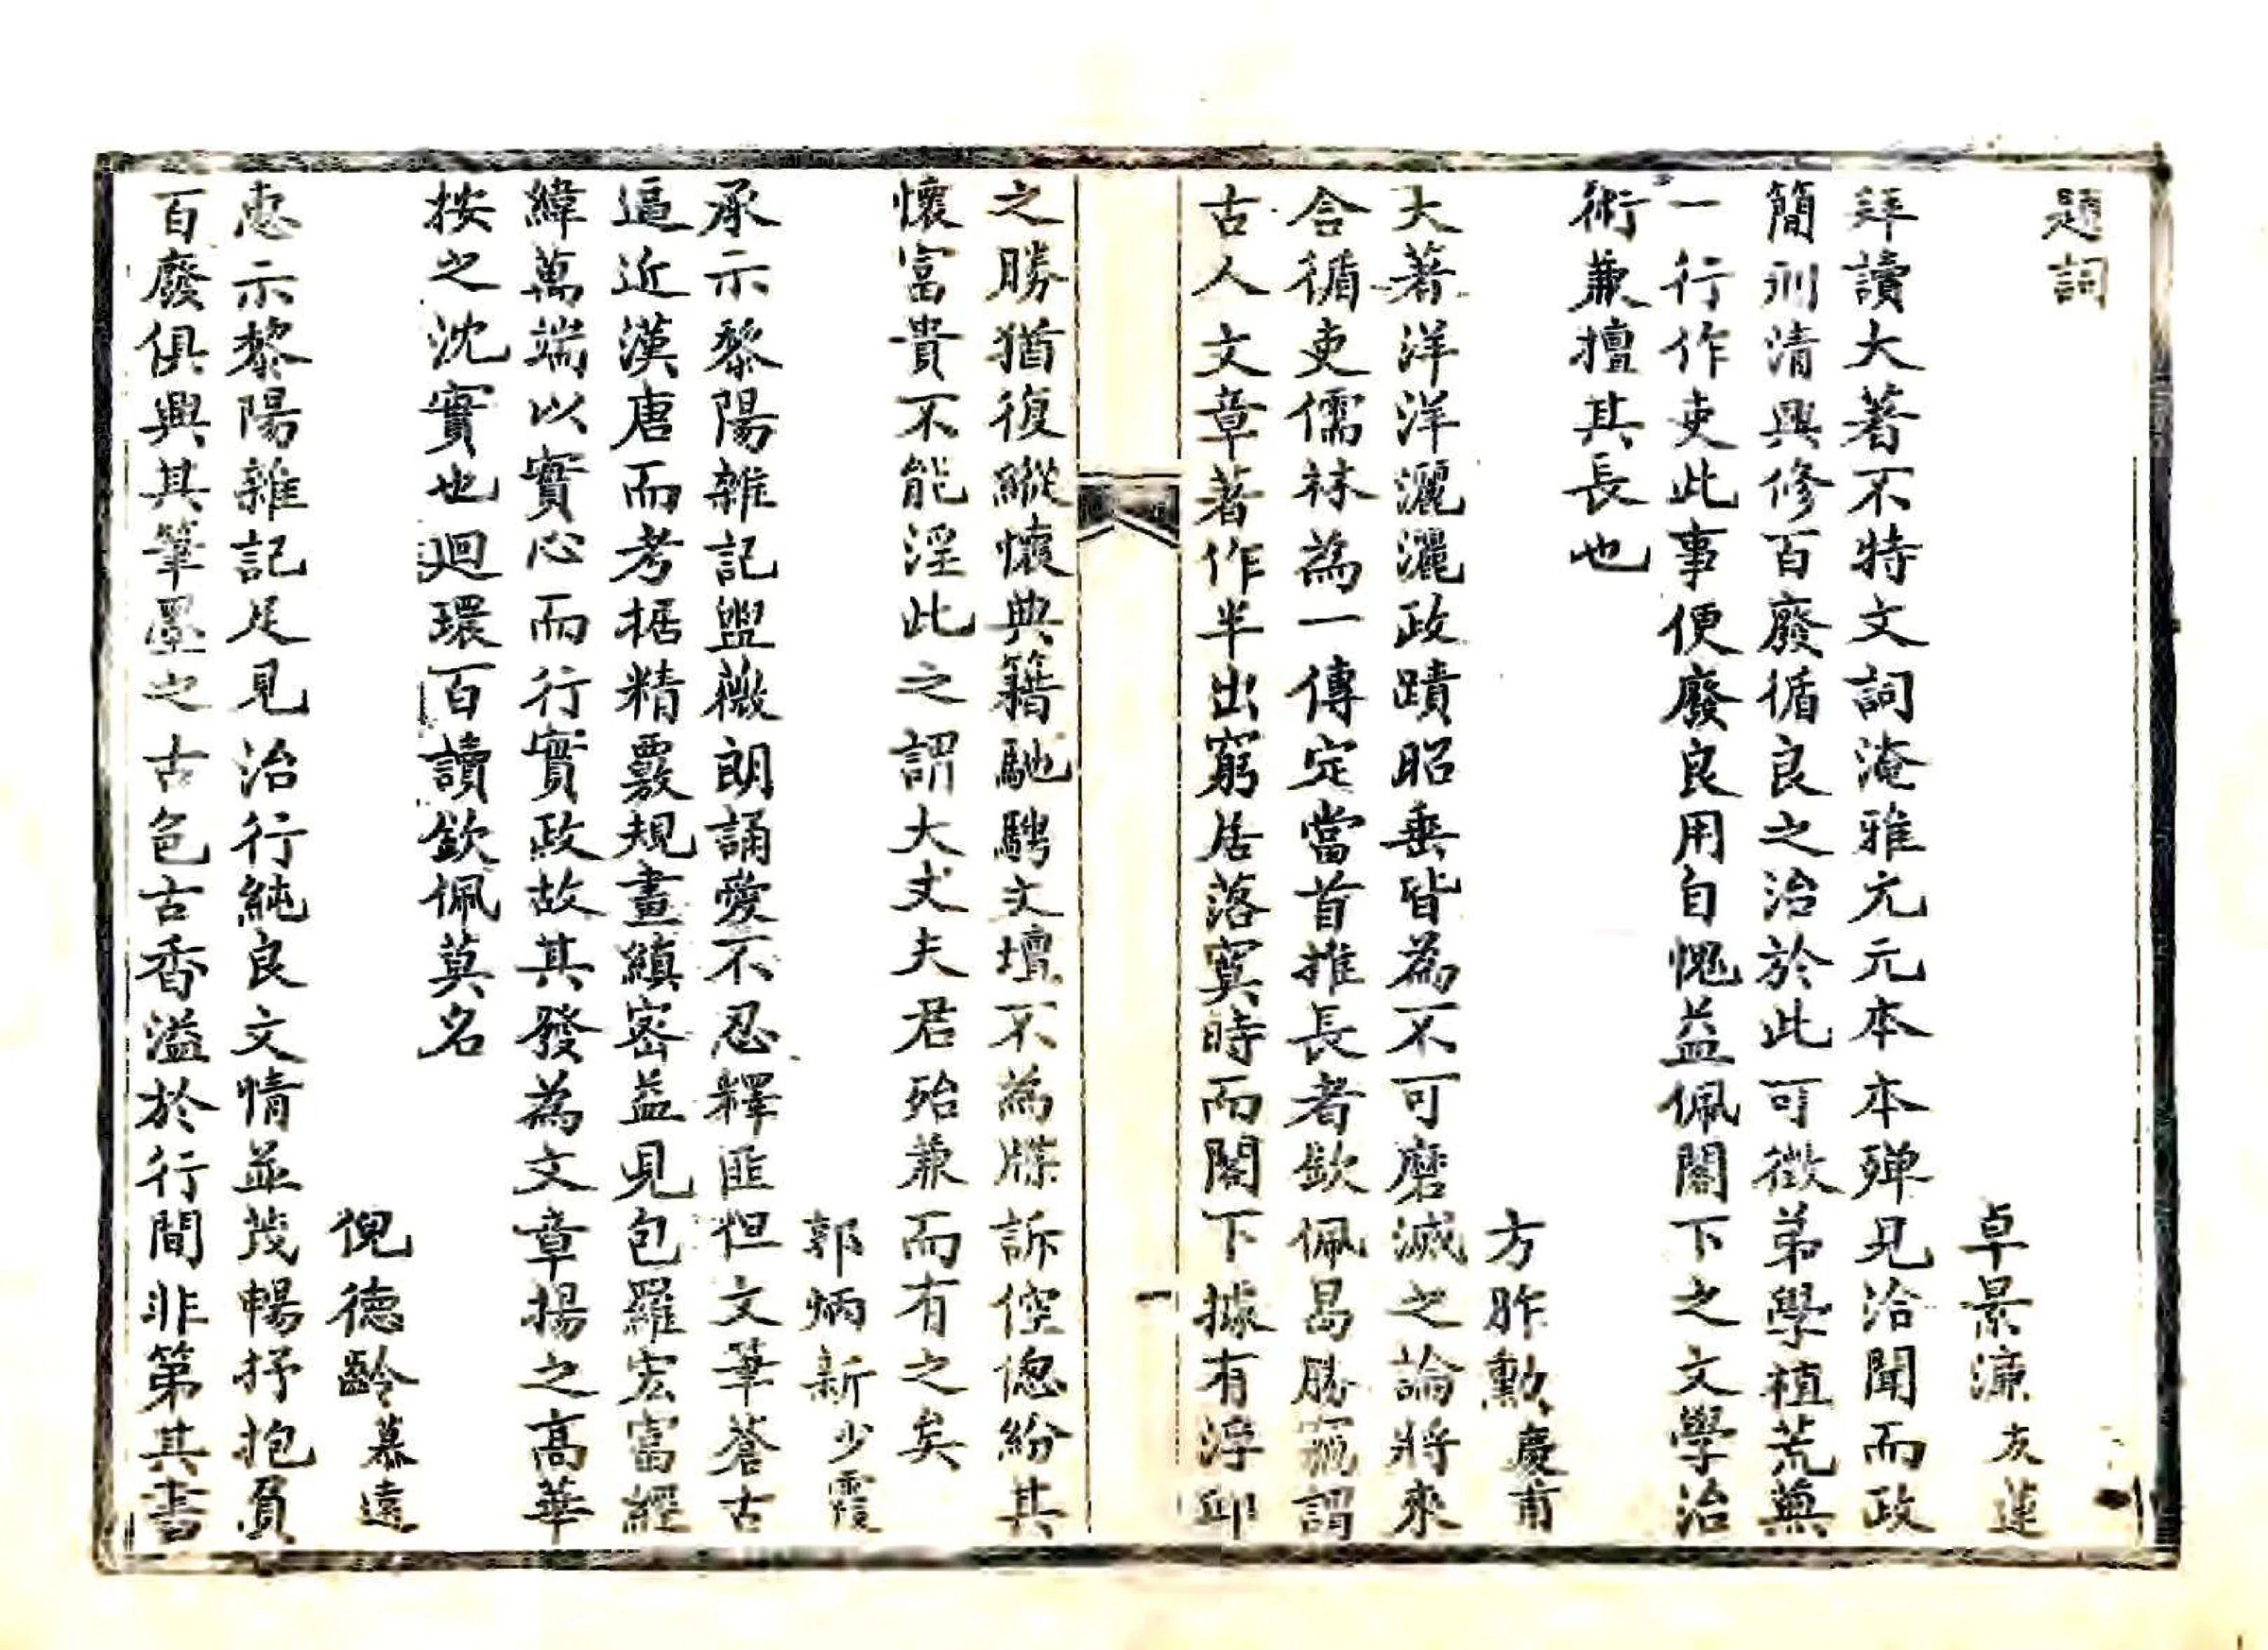 題詞
卓景濂友蓮
拜讀大著不特文詞淹雅元元本本殫見洽聞而政
簡刑清興修百廢循良之治於此可徵弟學植荒蕪
一行作吏此事便廢良用自愧益佩閣下之文學治
術兼擅其長也
方昨勳慶甫
大著洋洋灑灑政蹟昭垂皆為不可磨滅之論將來
合循吏儒林為一傳定當首推長者欽佩曷勝竊謂
古人文章著作半出窮居落寞時而閣下據有浮邱
之勝猶復縱懷典籍馳騁文壇不為牒訴倥傯紛其
懷富貴不能淫此之謂大丈夫君殆兼而有之矣
郭炳新少霞
承示黎陽雜記盥薇朗誦愛不忍釋匪但文筆蒼古
逼近漢唐而考据精覈規畫縝密益見包羅宏富經
緯萬端以實心而行實政故其發為文章揚之高華
按之沈實也迴環百讀欽佩莫名
倪德齡慕遠
惠示黎陽雜記足見治行純良文情並茂暢抒抱負
百廢俱興其筆墨之古色古香溢於行間非第其書